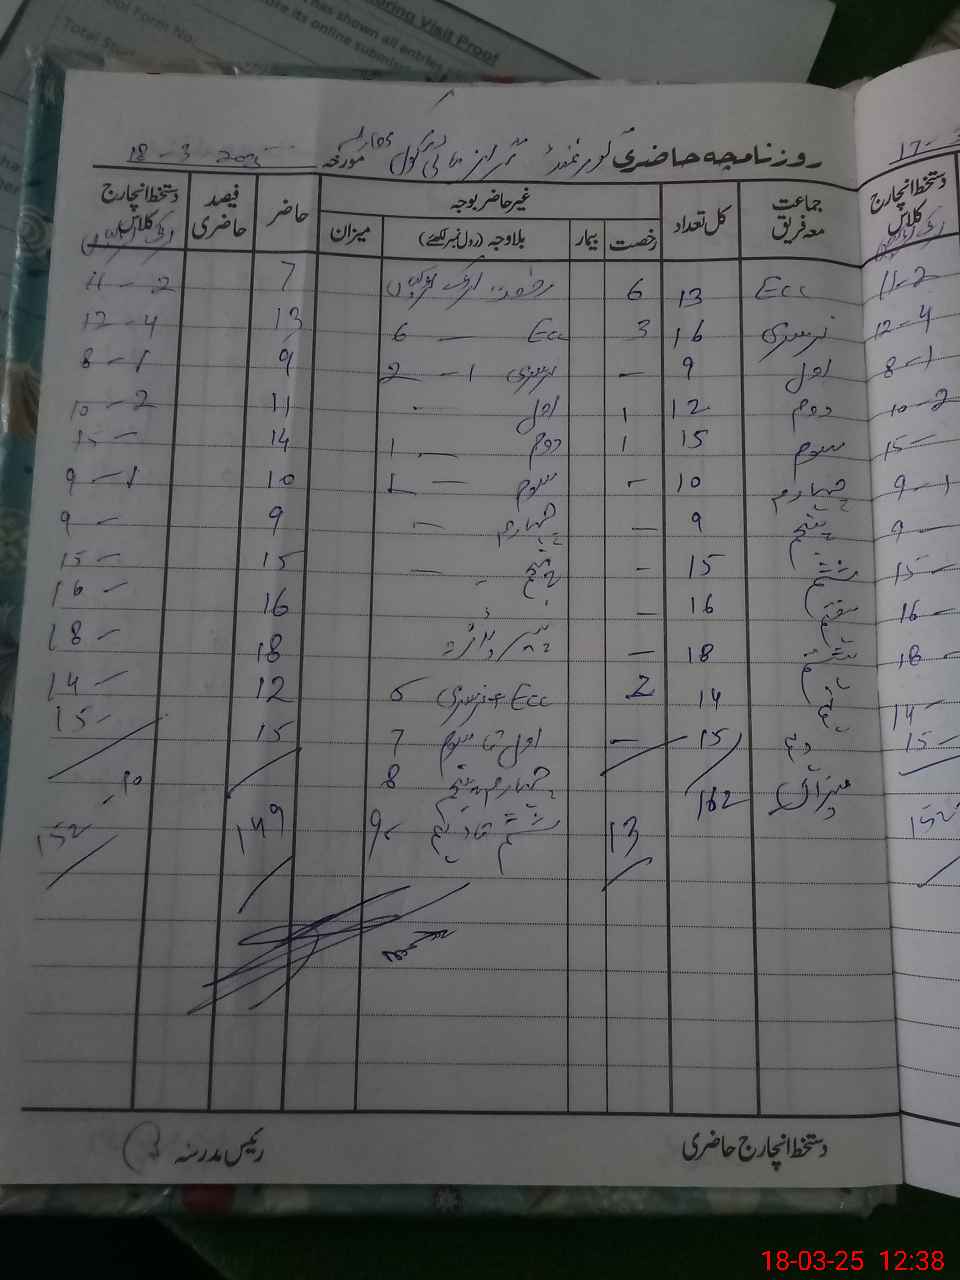 Visit Proof
has shown all entries
its online
Form No.
Total
روزنامچہ حاضری گورنمنٹ گرلز ہائی سکول 105 مورخہ 18-3-2025
17-3
جماعت معہ فریق کل تعداد غیر حاضر بوجہ حاضر فیصد حاضری دستخط انچارج کلاس
رخصت بیمار بلاوجہ (رول نمبر لکھئے) میزان
دستخط انچارج کلاس
Ecc 13 6 رخصت 7 11-2
نرسری 16 3 Ecc — 6 13 12-4
اول 9 — نرسری 1-2 9 8-1
دوم 12 1 اول — 11 10-2
سوم 15 1 دوم — 1 14 15-
چہارم 10 - سوم — 1 10 9-1
پنجم 9 — چہارم — 9 9-
ششم 15 - پنجم — 15 15-
ہفتم 16 — 16 16-
ہشتم 18 — 18 18-
نہم 14 2 Ecc + نرسری 5 12 14-
دہم 15 — اول تا سوم 7 15 15-
میزان 162 چہارم پنجم 8
13 ششم تا دہم 9 149 152
11-2
12-4
8-1
10-2
15-
9-1
9-
15-
16-
18-
14-
15-
152
دستخط انچارج حاضری رئیس مدرسہ
18-03-25 12:38